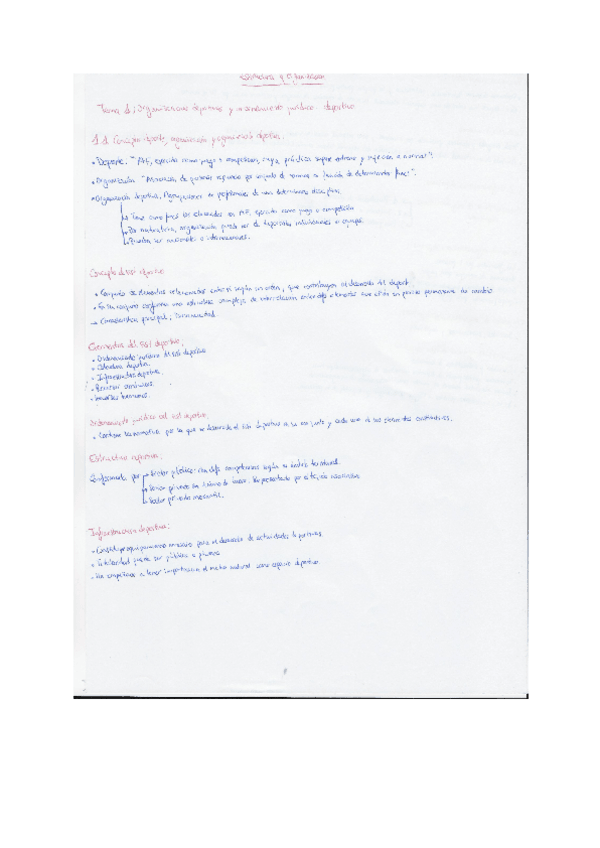 Estructura y Organización
Tema 1: Organizaciones deportivas y ordenamiento jurídico deportivo
1.1 Concepto deporte, organización y organización deportiva:
• Deporte: "Act. ejercida como juego o competición, cuya práctica supone entreno y sujeción a normas".
• Organización: "Asociación de personas regulada por conjunto de normas en función de determinados fines".
• Organización deportiva: Agrupaciones de una determinada disciplina
Tiene como fines ejercida como juego o competición
organización puede ser de deportistas individuales o grupal
Pueden ser nacionales o internacionales.
Concepto del sist deportivo
• Conjunto de elementos relacionados entre sí según un orden, que contribuyen al desarrollo del deporte
• En su conjunto conforma una estructura compleja de interrelación entre dfs elementos que están en proceso permanente de cambio
→ Característica principal:
Elementos del sist deportivo:
• Ordenamiento jurídico del sist deportivo
• Estructura deportiva.
• Infraestructura deportiva.
• Recursos económicos.
• Recursos humanos.
Ordenamiento jurídico del sist deportivo.
• Contiene la normativa por la que se desarrolla el sist deportivo en su conjunto y cada uno de los elementos constitutivos.
Estructura deportiva:
Conformada por Sector público: con dfs competencias según su ámbito territorial.
Sector privado sin ánimo de lucro. Representado por el tejido asociativo
Sector privado mercantil.
Infraestructura deportiva:
• necesario para el desarrollo de actividades deportivas.
• Titularidad puede ser pública o privada
• Ha empezado a tener importancia el medio natural como espacio deportivo